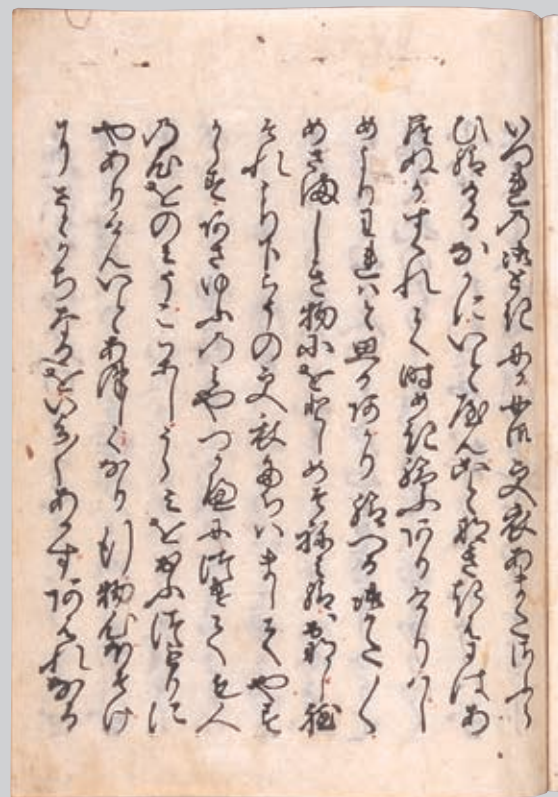 いつれの御ときにか女御更衣あまたさふら
ひ給けるなかにいとやんことなききはにはあ
らぬかすくれて時めき給ふありけりはし
めよりわれはと思あかり給へる御かた／＼
めさましき物にをとしめそねみ給おなし程
それより下らうの更衣たちはましてやす
からすあさゆふのみやつかへにつけても人
の心をのみうこかしうらみをおふつもりに
やありけんいとあつしくなり行物心ほそけ
にさとかちなるをいよ／＼あかすあはれなる